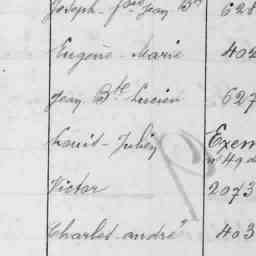 Joseph - Jean Bte 628
Eugène - Marie 402
Jean Bte Lucien 627
Louis - Julien Exem
nº 49 d
Victor 2073
Charles - andré 403